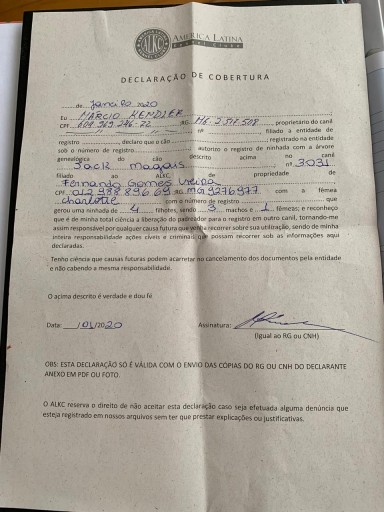 ALKC
AMERICA LATINA
Kennel Clube
DECLARAÇÃO DE COBERTURA
de Janeiro 2020
Eu MARCIO KENDLER
CPF 609.969.246-72 RG MG. 2517.508 proprietário do canil
nº filiado a entidade de
registro declaro que o cão registrado na entidade
sob o número de registro autorizo o registro de minhada com a árvore
genealógica do cão descrito acima no canil
Jack nº 3031
filiado ao ALKC de propriedade de
Fernando Gomes Vieira
CPF RG MG 9276977 com a fêmea
charlotte com o número de registro que
gerou uma ninhada de 4 filhotes, sendo 3 machos e 1 fêmeas; e reconheço
que é de minha total ciência a liberação do padreador para o registro em outro canil, tornando-me
assim responsável por qualquer causa futura que venha recorrer sobre sua utilização, sendo de minha
inteira responsabilidade ações cíveis e criminais que possam recorrer sob as informações aqui
declaradas.
Tenho ciência que causas futuras podem acarretar no cancelamento dos documentos pela entidade
e não cabendo a mesma responsabilidade.
O acima descrito é verdade e dou fé
Data: /01/2020 Assinatura:
(Igual ao RG ou CNH)
OBS: ESTA DECLARAÇÃO SÓ É VÁLIDA COM O ENVIO DAS CÓPIAS DO RG OU CNH DO DECLARANTE
ANEXO EM PDF OU FOTO.
O ALKC reserva o direito de não aceitar esta declaração caso seja efetuada alguma denúncia que
esteja registrado em nossos arquivos sem ter que prestar explicações ou justificativas.